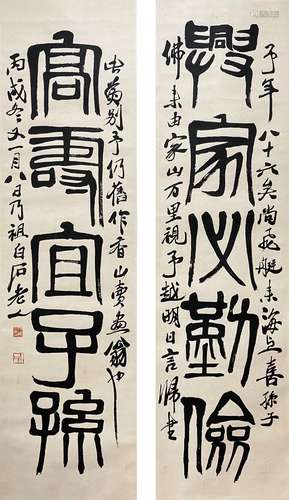 予年八十六矣尚飛艇來海上喜孫子
興家必勤儉
佛來由家山萬里視予越明日言歸書
此別予仍舊作香山賣畫翁也
高壽宜子孫
丙戌冬又一月八日乃祖白石老人